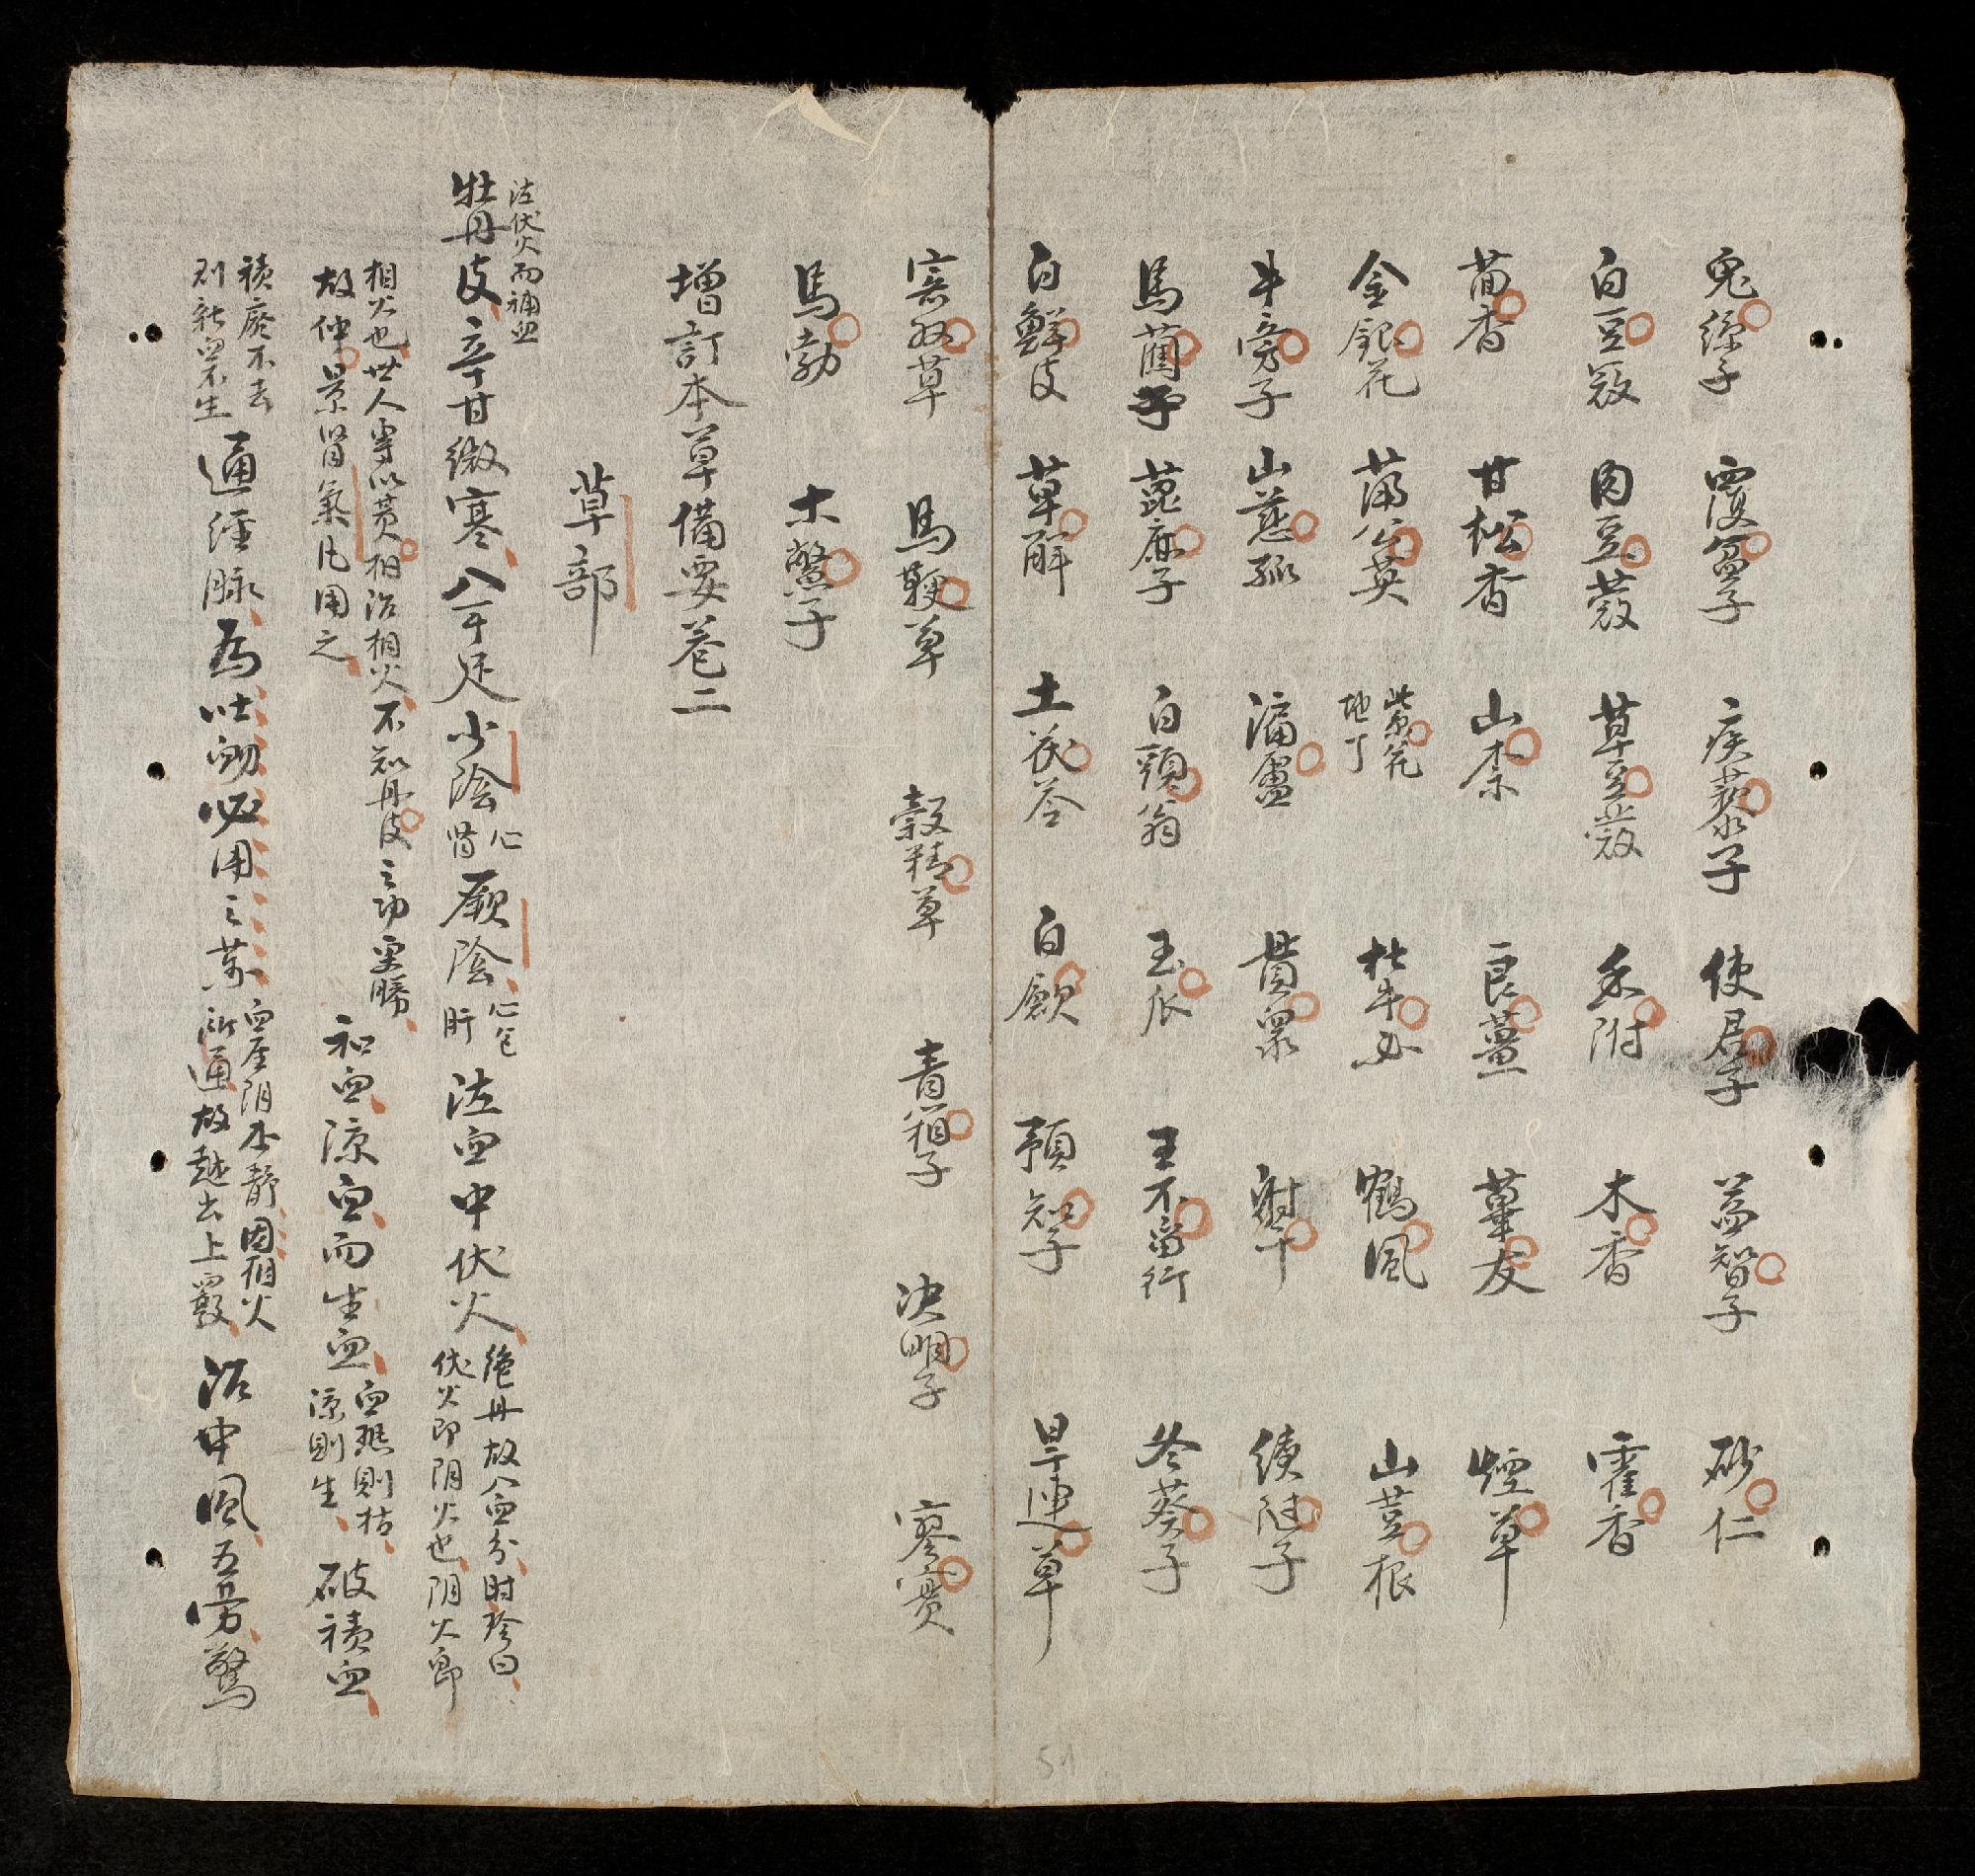 兎絲子 覆盆子 疾蔾子 使君子 益智子 砂仁
白豆蔻 肉豆蔻 草豆蔻 香附 木香 霍香
茴香 甘松香 山柰 良薑 蓽茇 煙草
金銀花 蒲公英 紫花地丁 杜牛必 鶴風 山荳根
牛旁子 山慈菰 漏盧 貫衆 射干 續隨子
馬藺子 蓖麻子 白頭翁 王瓜 王不留行 冬葵子
白鮮皮 萆解 土茯苓 白斂 預知子 旱連草
密奴草 馬鞭草 穀精草 青箱子 決明子 寥實
馬勃 木鱉子
增訂本草備要卷二
草部
泣伏火而補血
牡丹皮辛甘微寒入手足少陰心腎厥陰心包肝泣血中伏火絶丹故入血分時珍曰伏火即阴火也阴火即
相火也世人専以黄柏治相火不知丹皮之功更勝故仲景腎氣凡用之和血凉血而生血血熱則枯凉則生破積血
積瘀不去則新血不生通經脉為吐衂必用之葯血属阴本静因相火所逼故越出上竅治中風五劳驚